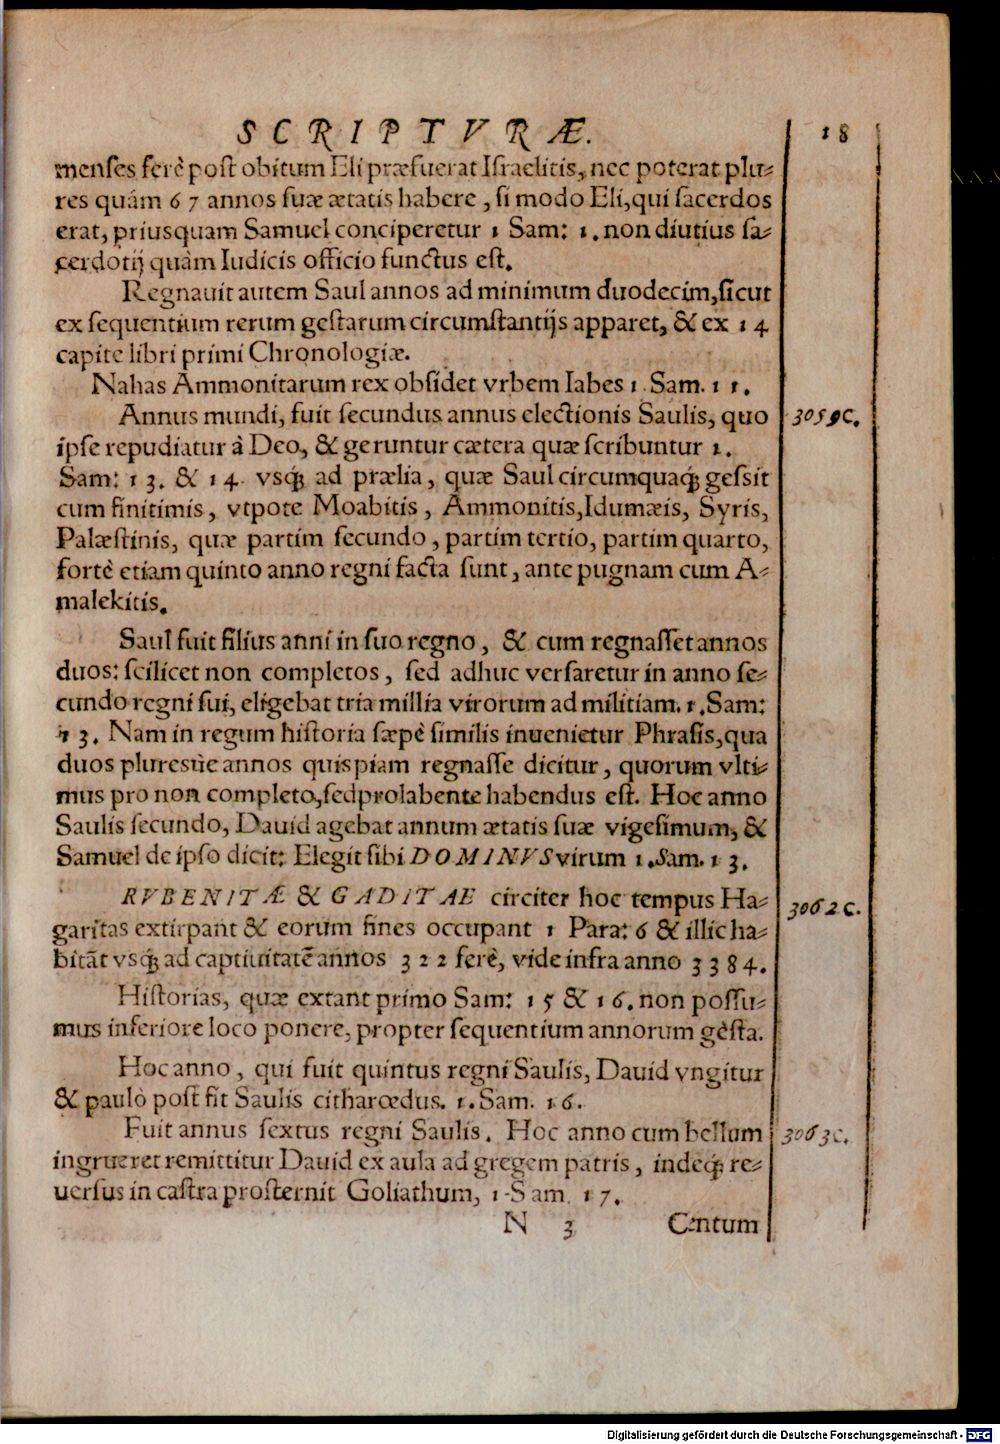 SCRIPTVRÆ. 18
menses ferè post obitum Eli præfuerat Israelitis, nec poterat plu-
res quám 67 annos suæ ætatis habere, si modo Eli, qui sacerdos
erat, priusquam Samuel conciperetur 1 Sam: 1. non diutius sa-
cerdotij quàm Iudicis officio functus est.
Regnauit autem Saul annos ad minimum duodecim, sicut
ex sequentium rerum gestarum circumstantijs apparet, & ex 14
capite libri primi Chronologiæ.
Nahas Ammonitarum rex obsidet vrbem Iabes 1 Sam. 11.
Annus mundi, fuit secundus annus electionis Saulis, quo 3059C.
ipse repudiatur â Deo, & geruntur cætera quæ scribuntur 1.
Sam: 13. & 14. vsq́; ad prælia, quæ Saul circumquaq́; gessit
cum finitimis, vtpote Moabitis, Ammonitis, Idumæis, Syris,
Palæstinis, quæ partim secundo, partim tertio, partim quarto,
fortè etiam quinto anno regni facta sunt, ante pugnam cum A-
malekitis.
Saul fuit filius anni in suo regno, & cum regnasset annos
duos: scilicet non completos, sed adhuc versaretur in anno se-
cundo regni sui, eligebat tria millia virorum ad militiam. 1. Sam:
13. Nam in regum historia sæpè similis inuenietur Phrasis, qua
duos pluresúe annos quispiam regnasse dicitur, quorum vlti-
mus pro non completo, sed prolabente habendus est. Hoc anno
Saulis secundo, Dauid agebat annum ætatis suæ vigesimum, &
Samuel de ipso dicit: Elegit sibi DOMINVS virum 1. Sam. 13.
RVBENITÆ & GADITAE circiter hoc tempus Ha- 3062C.
garitas extirpant & eorum fines occupant 1 Para: 6 & illic ha-
bitãt vsq́; ad captiuitatẽ annos 322 ferè, vide infra anno 3384.
Historias, quæ extant primo Sam: 15 & 16. non possu-
mus inferiore loco ponere, propter sequentium annorum gèsta.
Hoc anno, qui fuit quintus regni Saulis, Dauid vngitur
& paulò post fit Saulis citharœdus. 1. Sam. 16.
Fuit annus sextus regni Saulis. Hoc anno cum bellum 3063C.
ingrueret remittitur Dauid ex aula ad gregem patris, indeq́; re-
uersus in castra prosternit Goliathum, 1. Sam. 17.
N 3 Centum
Digitalisierung gefördert durch die Deutsche Forschungsgemeinschaft - DFG